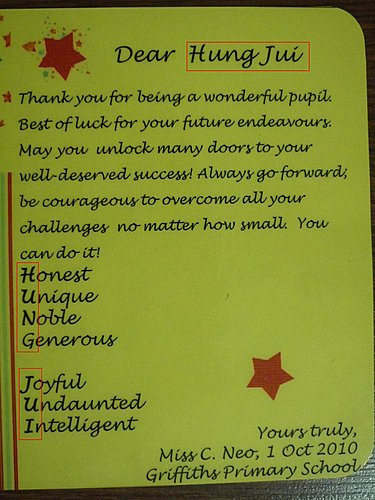 Dear Hung Jui
Thank you for being a wonderful pupil.
Best of luck for your future endeavours.
May you unlock many doors to your
well-deserved success! Always go forward;
be courageous to overcome all your
challenges no matter how small. You
can do it!
Honest
Unique
Noble
Generous
Joyful
Undaunted
Intelligent
Yours truly,
Miss C. Neo, 1 Oct 2010
Griffiths Primary School